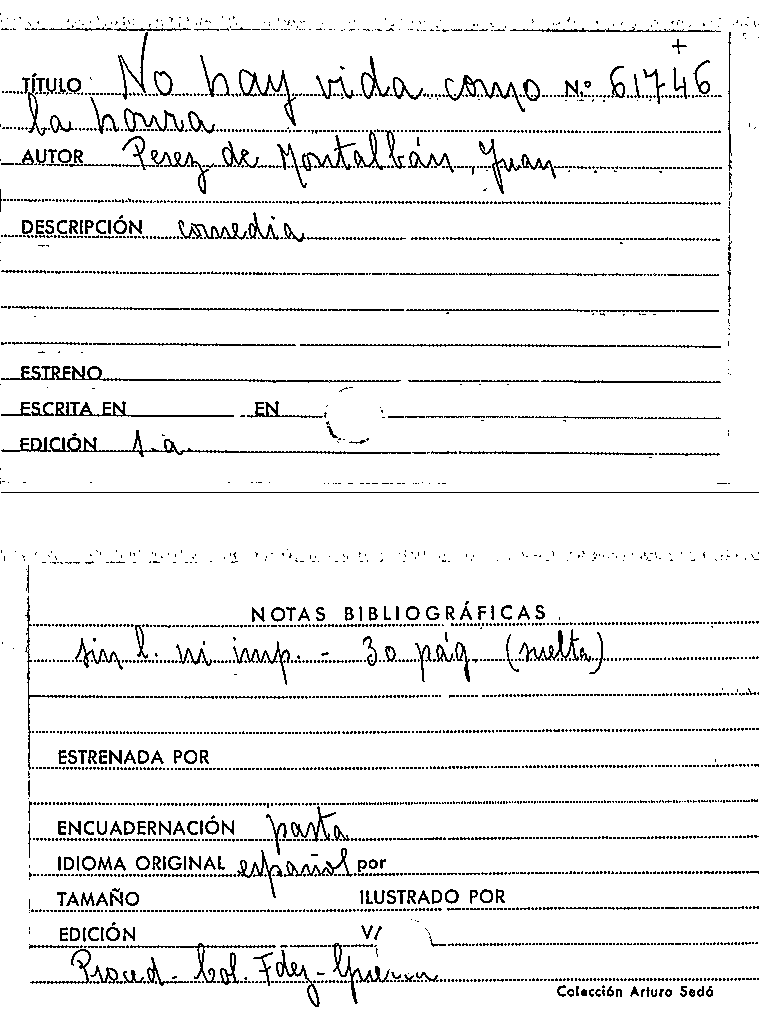 +
TÍTULO No hay vida como N.° 61746
la honra
AUTOR Perez de Montalbán, Juan
DESCRIPCIÓN comedia
ESTRENO
ESCRITA EN EN
EDICIÓN s.a.
NOTAS BIBLIOGRÁFICAS
sin l. ni imp. - 30 pág. (suelta)
ESTRENADA POR
ENCUADERNACIÓN pasta
IDIOMA ORIGINAL español por
TAMAÑO ILUSTRADO POR
EDICIÓN V/
Proced. Col. Fdez-Guerra
Colección Arturo Sedó